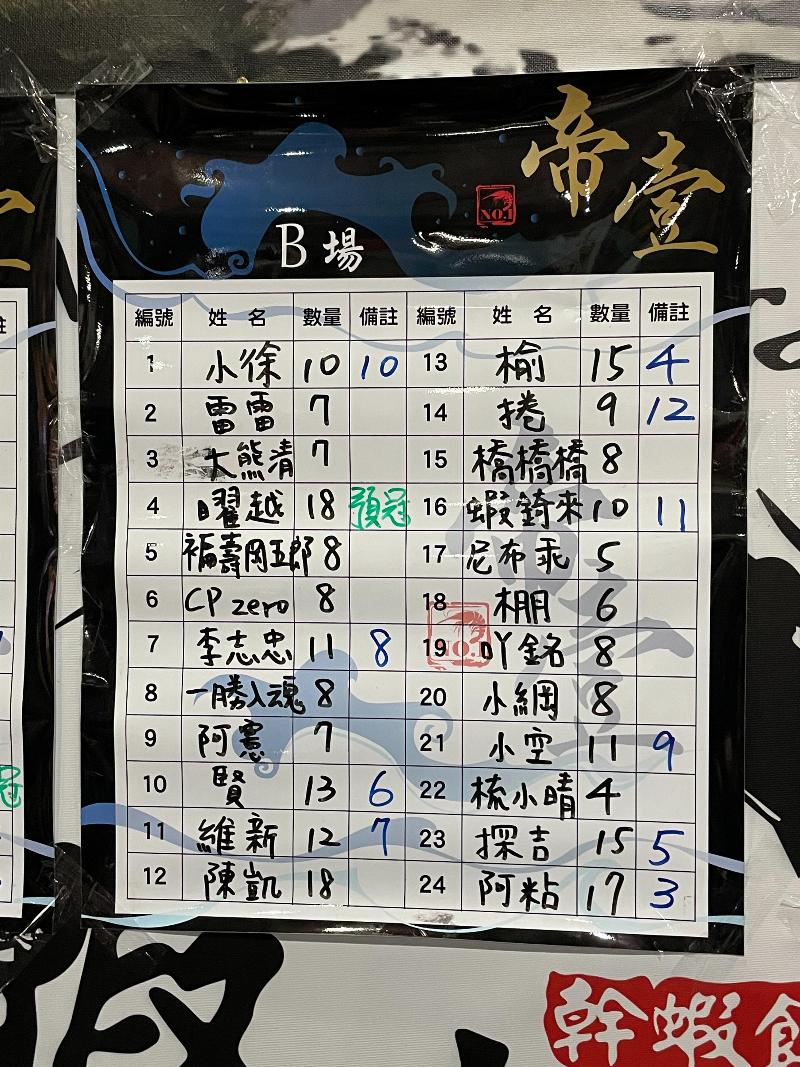 帝壹
NO.1
B場
編號 姓名 數量 備註 編號 姓名 數量 備註
1 小徐 10 10 13 榆 15 4
2 雷雷 7 14 捲 9 12
3 大熊清 7 15 橋橋橋 8
4 曜越 18 預冠 16 蝦錡來 10 11
5 福壽岡五郎 8 17 尼布乖 5
6 CP zero 8 18 棚 6
7 李志忠 11 8 19 吖銘 8
8 一勝入魂 8 20 小綱 8
9 阿憲 7 21 小空 11 9
10 賢 13 6 22 梳小晴 4
11 維新 12 7 23 探吉 15 5
12 陳凱 18 24 阿粘 17 3
幹蝦